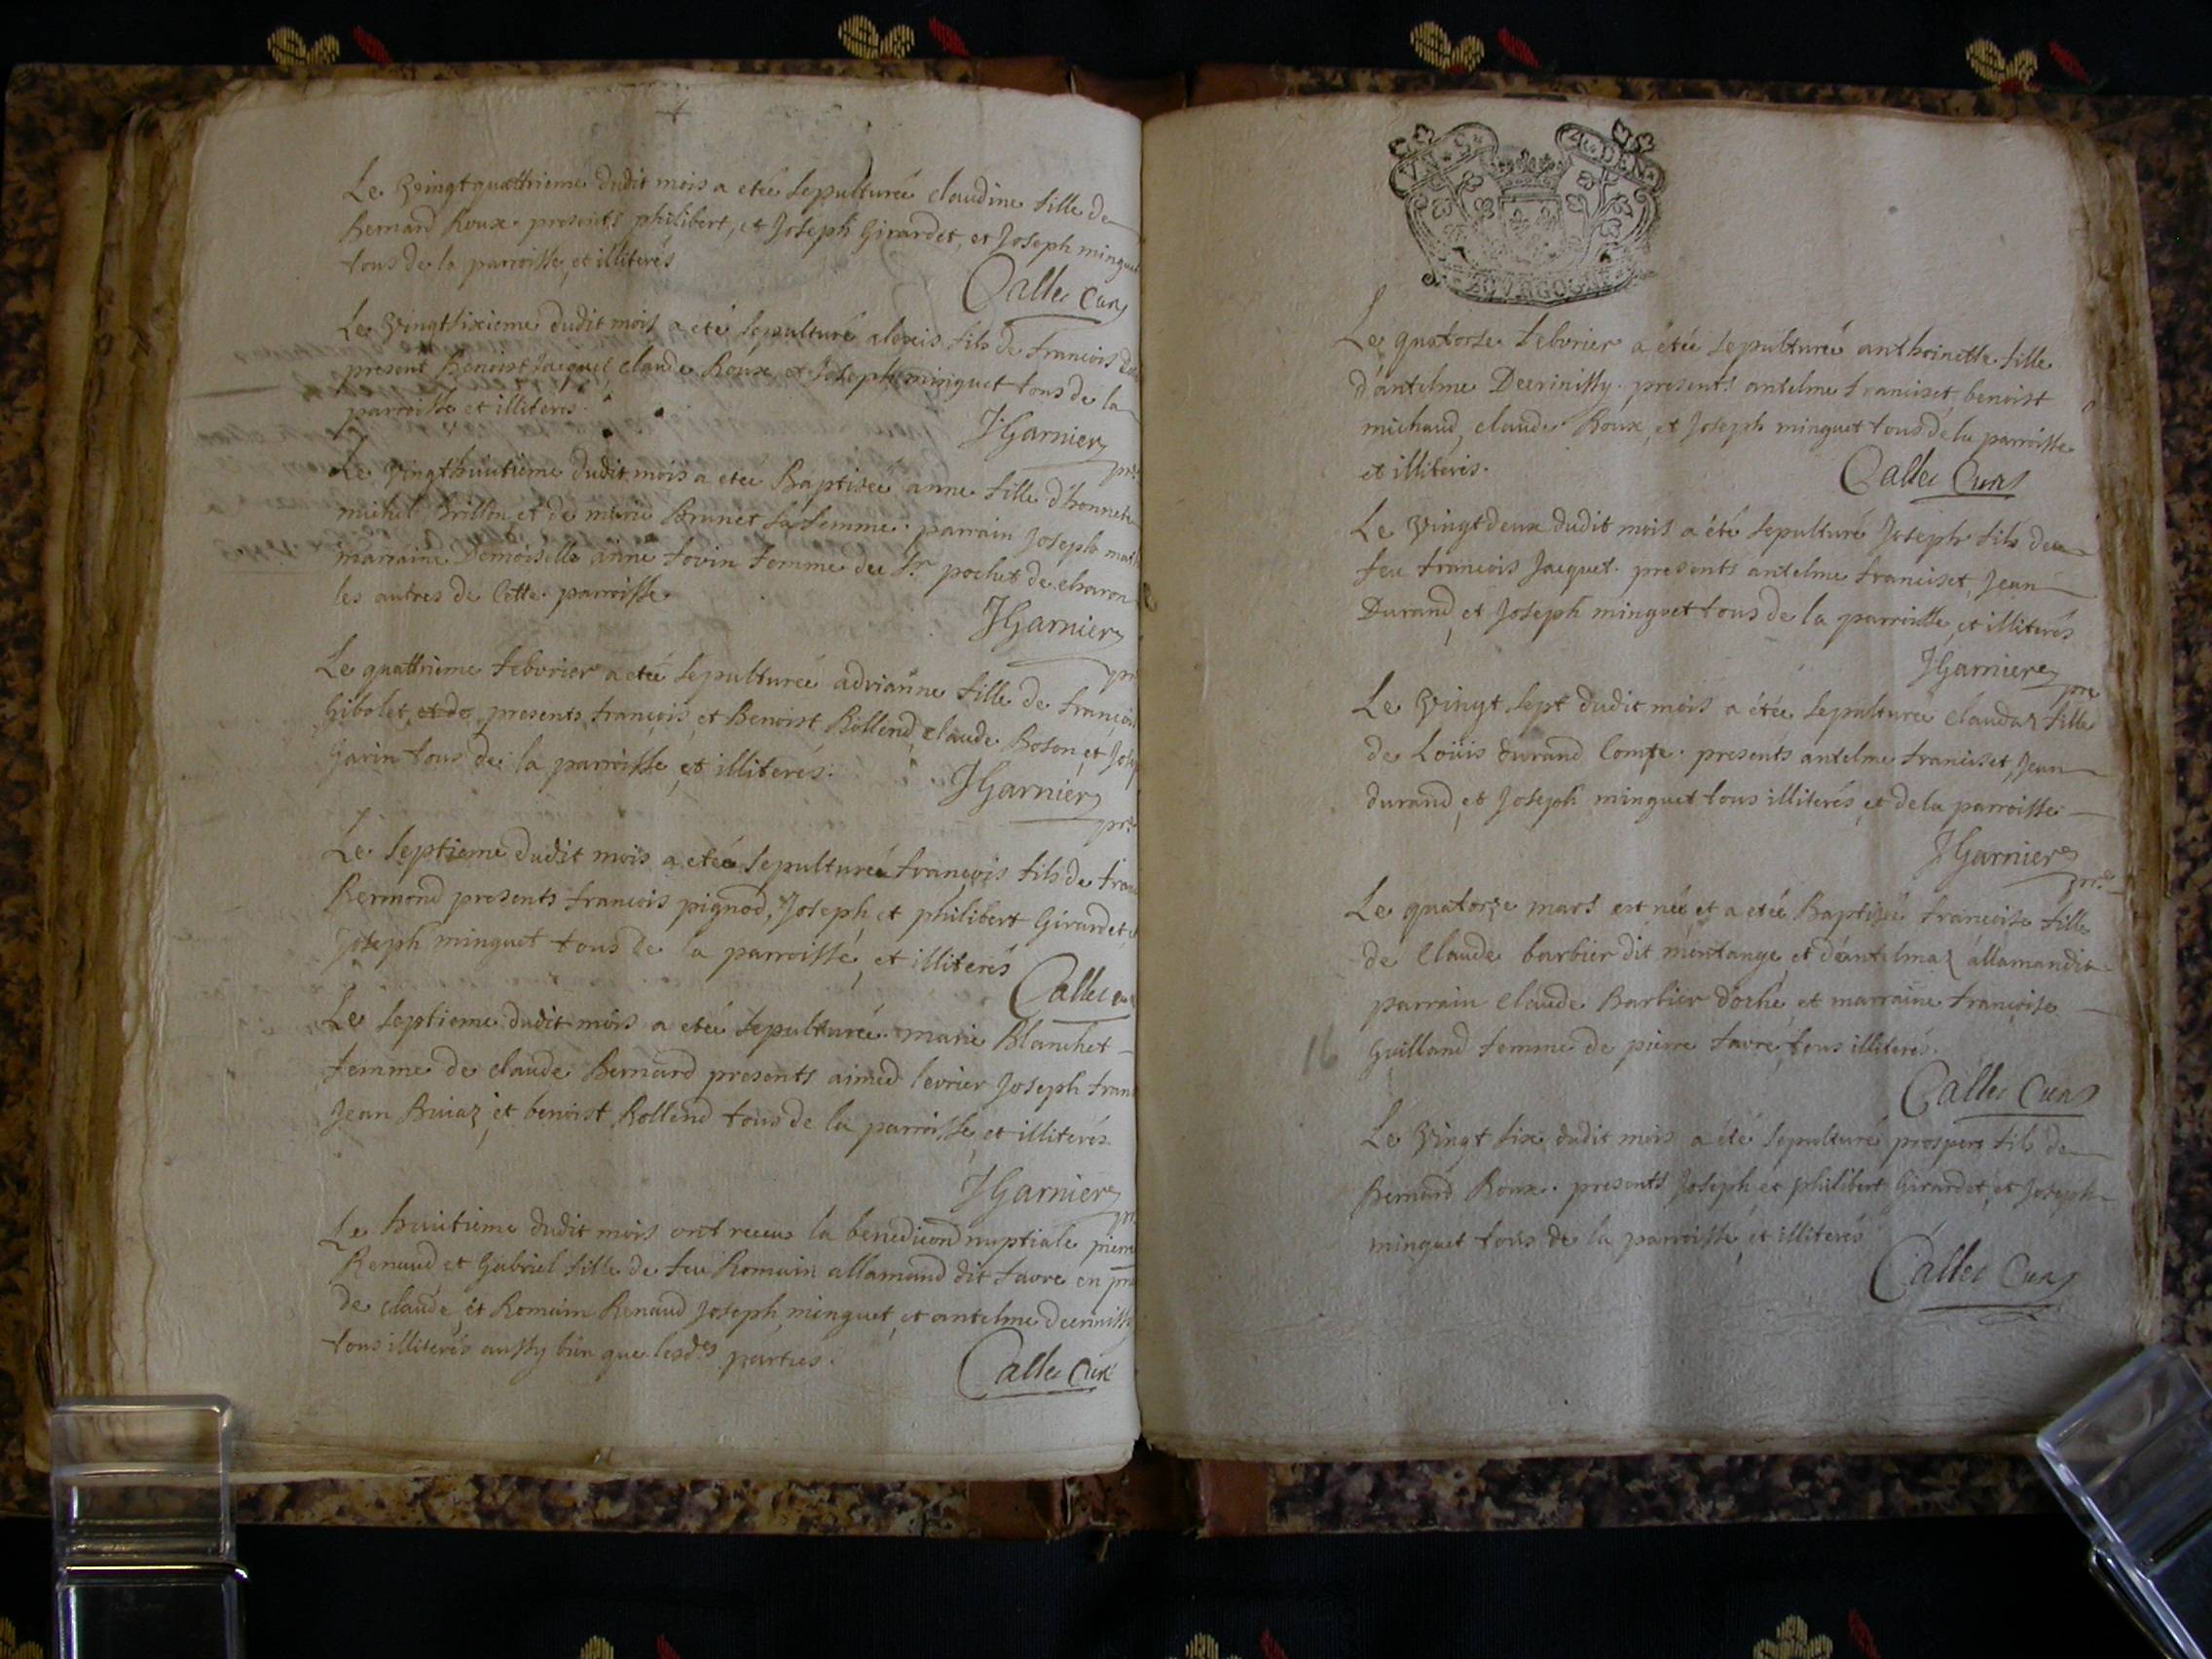 Le vingt quattrieme dudit mois a eteé sepultureé claudine fille de
Bernard Roux. presents philibert, et Joseph Girardet, et Joseph minguet
tous de la parroisse, et illiterés
Callet Curé
Le vingtsixieme dudit mois a eté sepulturé alexis fils de francois
present Benoist Jacquet, claude Roux, et Joseph minguet tous de la
parroisse et illiterés.
JGarnier
pre
Le vingthuitieme dudit mois a eteé Baptiseé anne fille d'honneste
michel Brillon et de marie Brunet sa femme. parrain Joseph
marraine Demoiselle anne fovin femme du Sr pochet de
les autres de Cette parroisse
JGarnier
pre
Le quattrieme febvrier a eteé sepultureé adrianne fille de françois
Gibolet et de presents françois, et Benoist Rollend, claude Boson, et
Garin tous de la parroisse, et illiterés.
JGarnier
pre
Le septieme dudit mois a eteé sepultureé françois fils de
Bermond presents francois pignod, Joseph, et philibert Girardet,
Joseph minguet tous de la parroisse, et illiterés
Callet
Le septieme dudit mois a eteé sepultureé marie Blanchet
femme de claude Bernard presents aimed levrier Joseph
Jean Buiaz, et benoist Rollend tous de la parroisse, et illiterés
JGarnier
Le huitieme dudit mois ont receus la benediction nuptiale pierre
Renaud, et Gabriel fille de feu Romain allamand dit favre en
de claude, et Romain Renaud Joseph minguet, et antelme
tous illiterés aussy bien que lesdes parties.
Callet Curé
BOURGOGNE
Le quatorse febvrier a eteé sepultureé anthoinette fille
d'antelme Decrinissy. presents antelme franciset, benoist
michaud, claude Roux, et Joseph minguet tous de la parroisse
et illiterés.
Callet Curé
Le vingtdeux dudit mois a eté sepulturé Joseph fils de
feu francois Jacquet. presents antelme franciset, Jean
Durand, et Joseph minguet tous de la parroisse, et illiterés
JGarnier
pre
Le vingt sept dudit mois a éteé sepultureé claudaz fille
de Loüis durand Comte. presents antelme franciset, Jean
durand, et Joseph minguet tous illiterés, et de la parroisse
JGarnier
pre
Le quatorze mars est neé et a eteé Baptiseé francoise fille
de Claude barbier dit montange, et d'antelmaz allamandit
parrain claude Barbier d'oche, et marraine françoise
16 Guilland femme de pierre favre, tous illiterés.
Callet Curé
Le vingt six dudit mois a été sepulturé prospere fils de
Bernard Roux. presents Joseph et philibert Girardet, et Joseph
minguet tous de la parroisse, et illiterés
Callet Curé